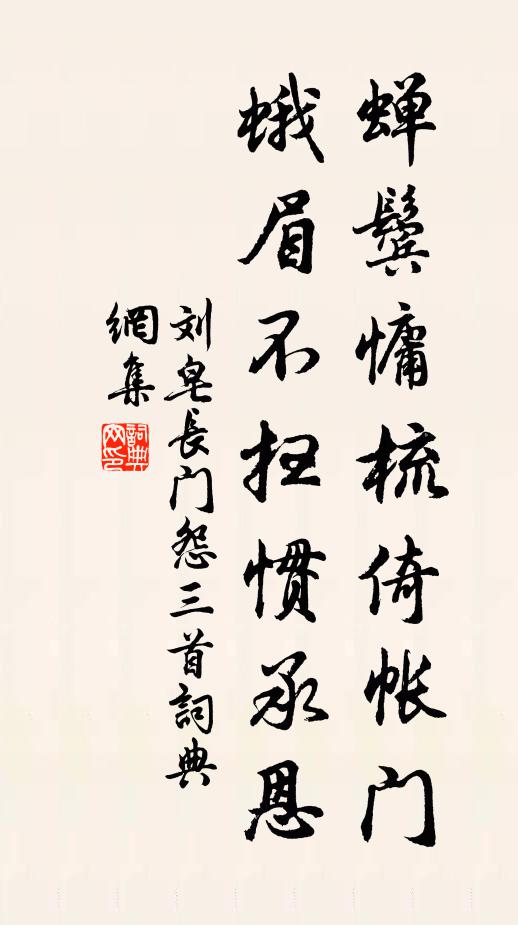 蝉鬓慵梳倚帐门
蛾眉不扫惯承恩
刘皂长门怨三首詞典
網集
詞典网印